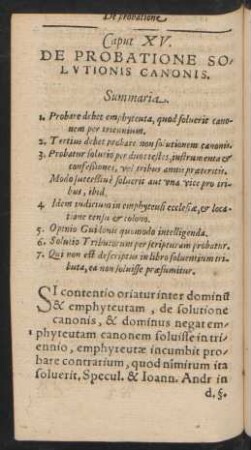 De probatione
Caput XV.
DE PROBATIONE SO-
LVTIONIS CANONIS.
Summaria.
1. Probare debet emphyteuta, quod soluerit cano-
nem per triennium.
2. Tertius debet probare non solutionem canonis.
3. Probatur solutio per duos testes, instrumenta &
confessiones, vel tribus annis præteritis.
Modo successiuè soluerit aut vna vice pro tri-
bus, ibid.
4. Idem iudicium in emphyteusi ecclesiæ, & loca-
tione censu & colono.
5. Opinio Guidonis quomodo intelligenda.
6. Solutio Tributorum per scripturam probatur.
7. Qui non est descriptus in libro soluentium tri-
buta, ea non soluisse præsumitur.
SI contentio oriatur inter dominũ
& emphyteutam, de solutione
canonis, & dominus negat em-
phyteutam canonem soluisse in tri-
ennio, emphyteutæ incumbit pro-
bare contrarium, quod nimirum ita
soluerit, Specul. & Ioann. Andr in
d. §.